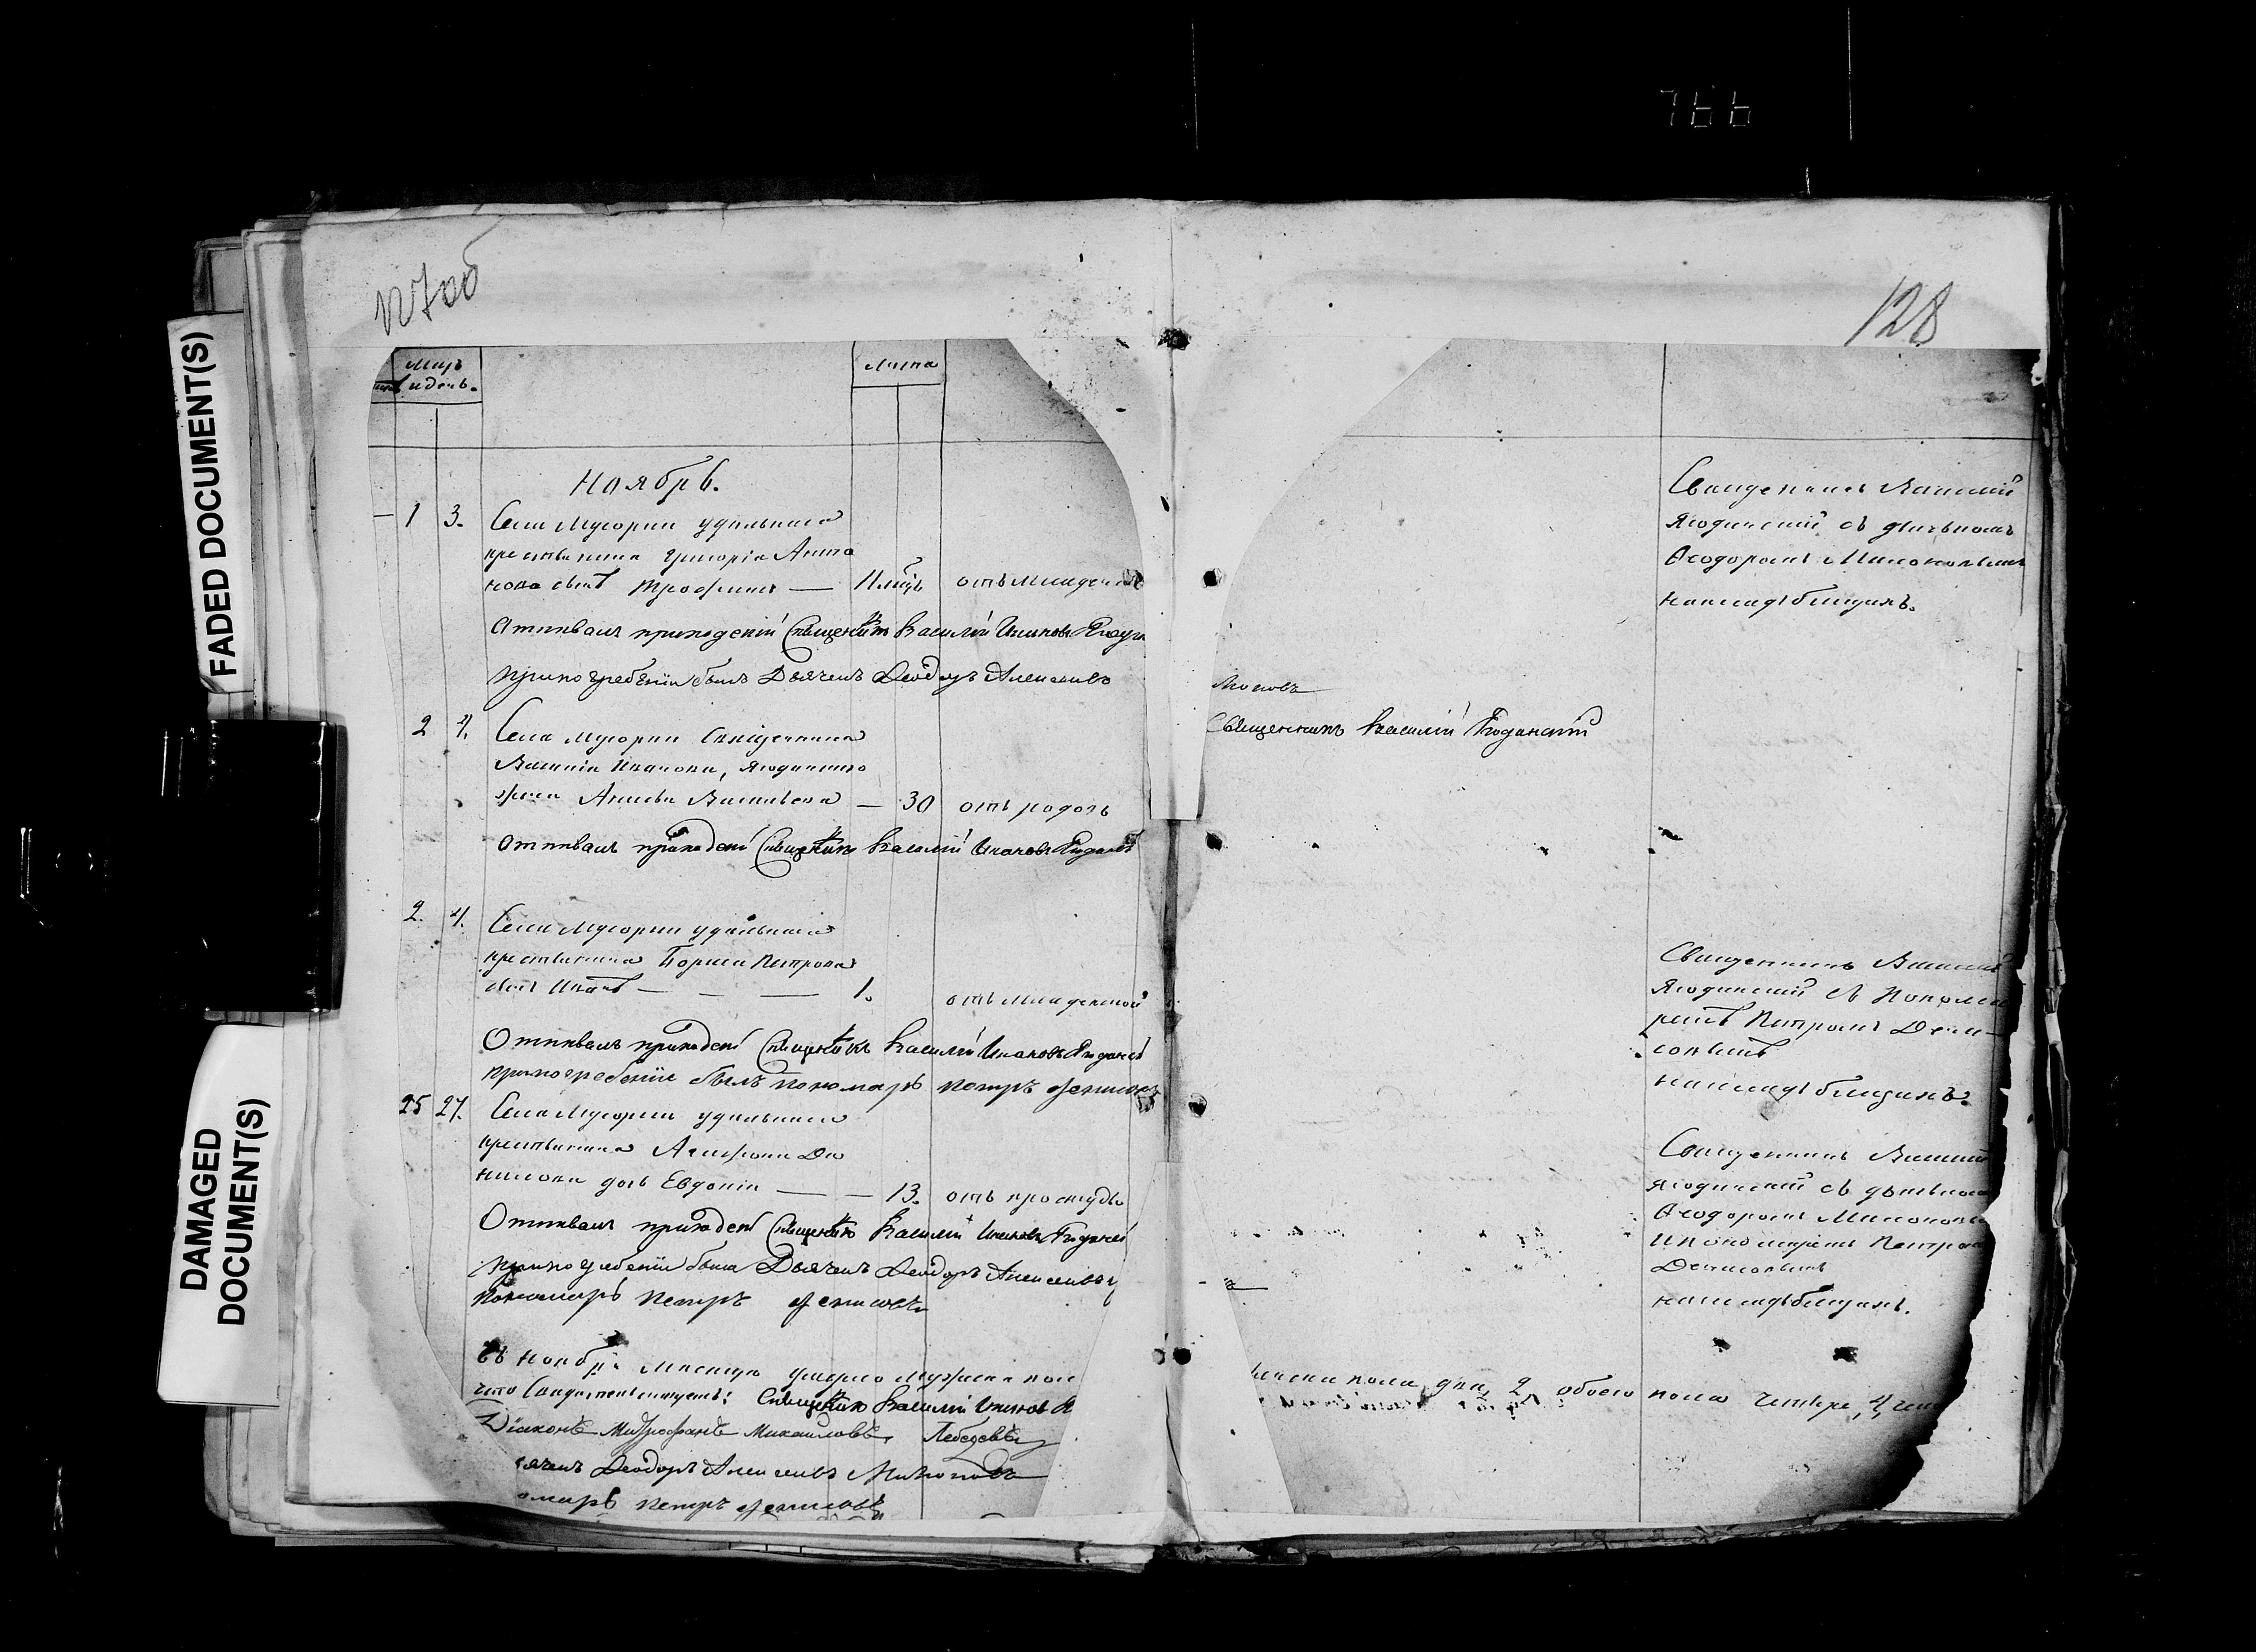 FADED DOCUMENT(S)
DAMAGED
DOCUMENT(S)
127об
128
Мцъ
и день.
Лѣта
Ноябрь.
1 3. Села Мусорки удѣльнаго
крестьянина Григорія Анто
нова сынъ Трофимъ — 11 мцъ отъ младенч
Отпѣвалъ приходскій Священникъ Василій Ивановъ Ягодин
при погребеніи былъ Дьячекъ Ѳеодоръ Алексѣевъ
2 4. Села Мусорки Священника
Василія Иванова, Ягодинскаго
жена Васильева — 30 отъ родовъ
Отпѣвалъ приходскій Священникъ Василій Ивановъ Ягодинскій
2. 4. Села Мусорки удѣльнаго
крестьянина Бориса Петрова
сынъ Иванъ — — — 1. отъ младенской
Отпѣвалъ приходскій Священникъ Василій Ивановъ Ягодинскій
при погребеніи былъ пономарь Петръ Денисовъ
25 27. Села Мусорки удѣльнаго
крестьянина Агафона Де
нисова дочь Евдокія — — 13. отъ простуды
Отпѣвалъ приходскій Священникъ Василій Ивановъ Ягодинскій
при погребеніи были Дьячекъ Ѳеодоръ Алексѣевъ и
пономарь Петръ Денисовъ
въ Ноябрѣ Мѣсяцѣ умерло мужска пол
что свидѣтельствуемъ: Священникъ Василій Ивановъ Я
Діаконъ Митрофанъ Михаиловъ Лебедевъ
ячекъ Ѳеодоръ Алексѣевъ
омарь Петръ Денисовъ
Священникъ Василій
Ягодинскій съ дьячкомъ
Ѳеодоромъ
на кладбищахъ.
Священникъ Василій Ягодинскій
Священникъ Василій
Ягодинскій съ Понома
ремъ Петромъ Дени–
совымъ
на кладбищахъ.
Священникъ Василій
Ягодинскій съ дьячкомъ
Ѳеодоромъ
и пономаремъ Петром
Денисовымъ
на кладбищахъ.
женска пола два, 2, обоего пола четыре, 4,